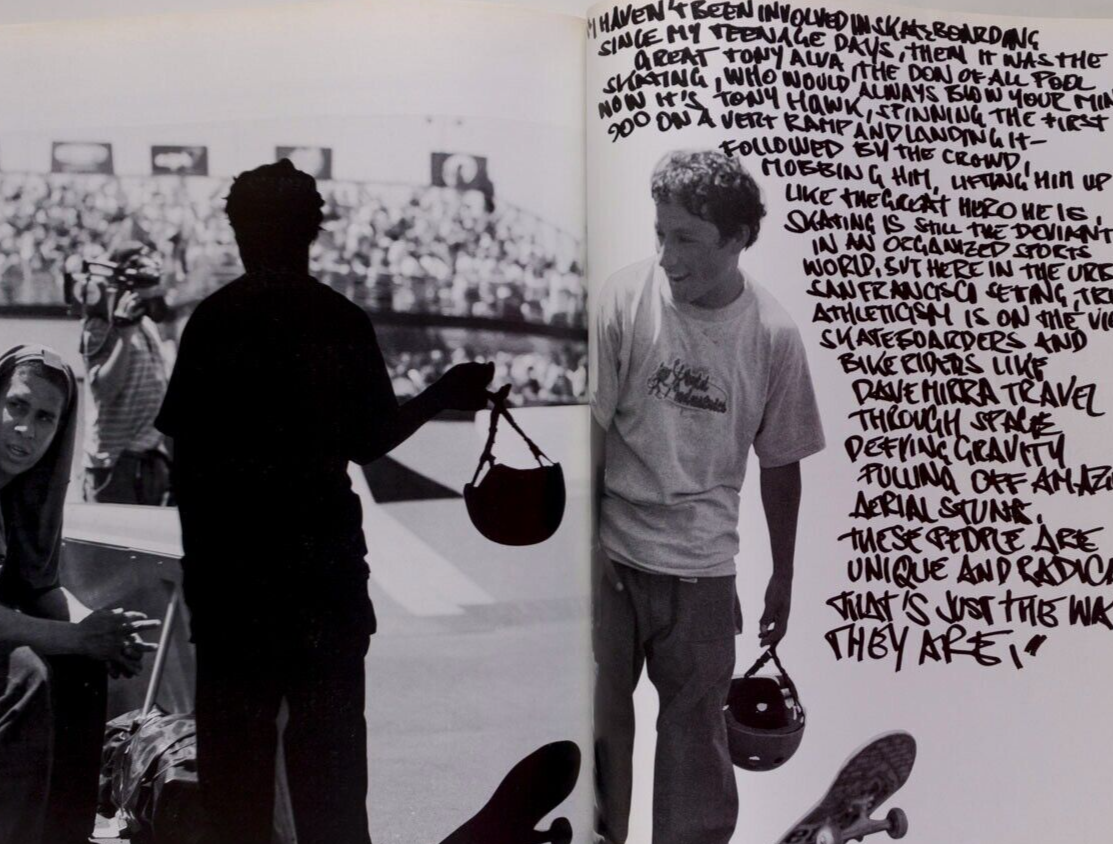 HAVEN'T BEEN INVOLVED IN SKATEBOARDING
SINCE MY TEENAGE DAYS, THEN IT WAS THE
GREAT TONY ALVA, THE DON OF ALL POOL
SKATING, WHO WOULD ALWAYS BLOW YOUR MIN
NOW IT'S TONY HAWK, SPINNING THE FIRST
900 ON A VERT RAMP AND LANDING IT—
FOLLOWED BY THE CROWD,
MOBBING HIM, LIFTING HIM UP
LIKE THE GREAT HERO HE IS,
SKATING IS STILL THE DEVIANT
IN AN ORGANIZED SPORTS
WORLD, BUT HERE IN THE URB
SAN FRANCISCO SETING, TR
ATHLETICISM IS ON THE VI
SKATEBOARDERS AND
BIKE RIDERS LIKE
DAVE MIRRA TRAVEL
THROUGH SPACE
DEFYING GRAVITY
PULLING OFF AMAZI
AERIAL STUNTS.
THESE PEOPLE ARE
UNIQUE AND RADICA
THAT'S JUST THE WA
THEY ARE,"
World
Industries